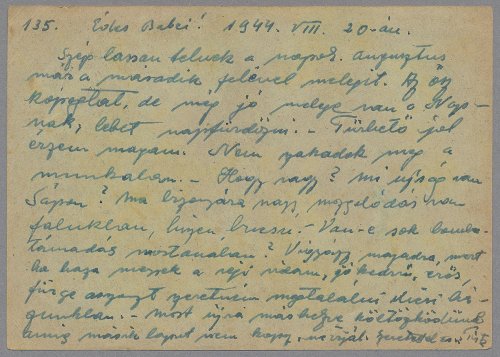 135. Édes Babci! 1944. VIII. 20-án.
Szép lassan telnek a napok. Augusztus
már a második felével melegít. Az ősz
kopogtat, de még jó melege van a Nap-
nak, lehet napfürdőzni. - Türhető jól
érzem magam. Nem szakadok meg a
munkában. - Hogy vagy? Mi ujság van
Sápon? Ma bizonyára nagy mozgolódás van
falunkban, hiszen búcsú. - Van-e sok bomba-
támadás mostanában? Vigyázz magadra, mert
ha haza megyek a régi vidám, jó kedvű, erős,
fürge asszonyt szeretném megtalálni
- Most újra más helyre költözködünk
amíg másik lapot nem kapsz, ne írjál.